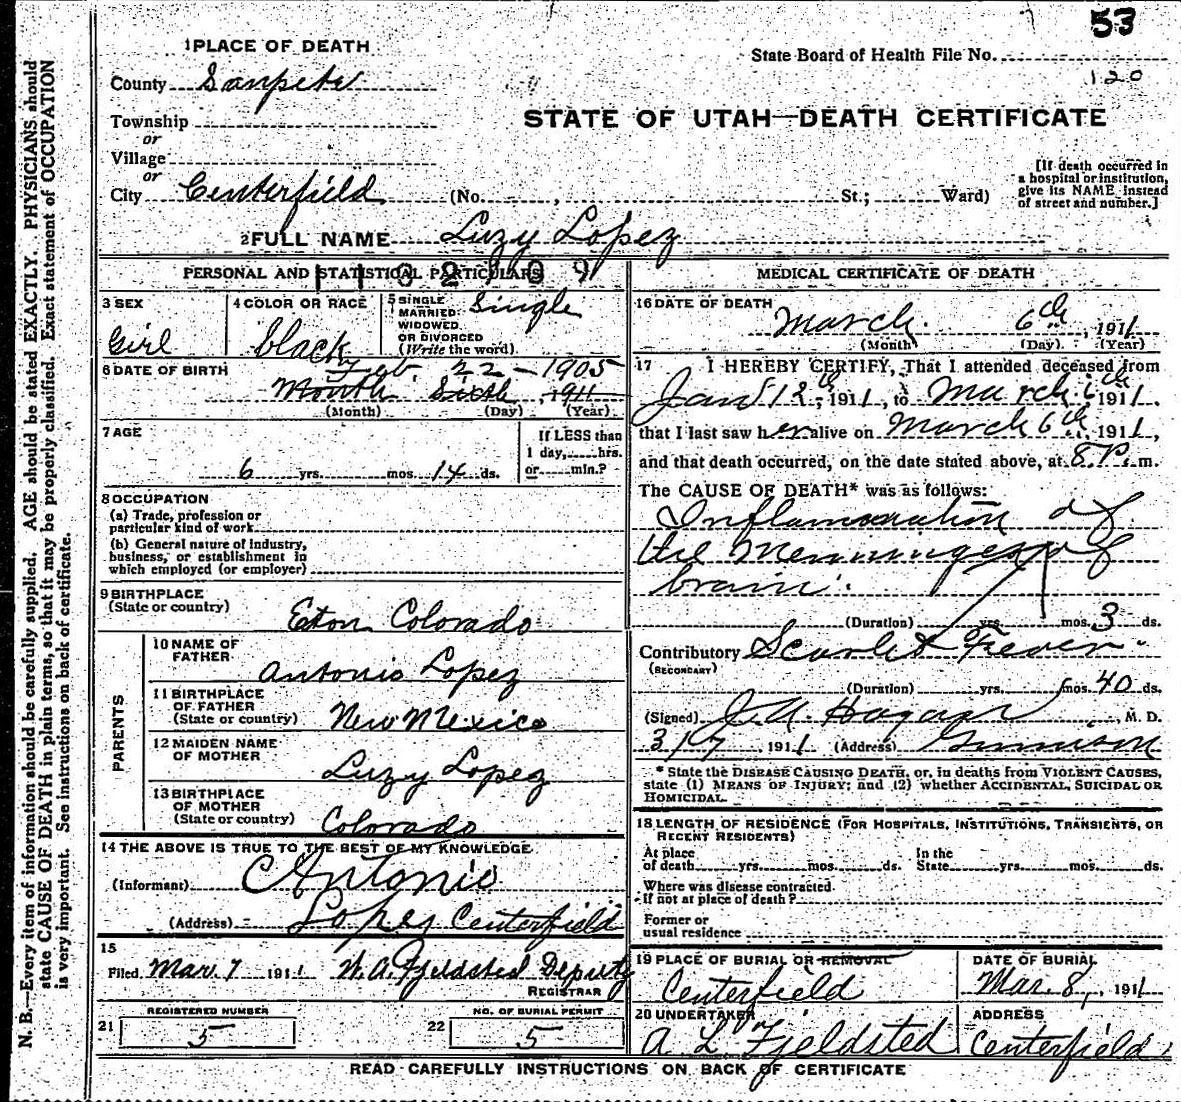 53
1 PLACE OF DEATH
State Board of Health File No.
120
County Sanpete
STATE OF UTAH—DEATH CERTIFICATE
Township
or
Village
or
City Centerfield (No. , St.; Ward)
[If death occurred in
a hospital or institution,
give its NAME instead
of street and number.]
2 FULL NAME Luzy Lopez
PERSONAL AND STATISTICAL PARTICULARS
3 SEX
Girl
4 COLOR OR RACE
black
5 SINGLE
MARRIED
WIDOWED
OR DIVORCED
(Write the word)
Single
6 DATE OF BIRTH Feb. 22 - 1905
Month Sixth , 1911
(Month) (Day) (Year)
7 AGE
6 yrs. mos. 14 ds.
If LESS than
1 day, hrs.
or min.?
8 OCCUPATION
(a) Trade, profession or
particular kind of work
(b) General nature of industry,
business, or establishment in
which employed (or employer)
9 BIRTHPLACE
(State or country)
Eton Colorado
PARENTS
10 NAME OF
FATHER
Antonio Lopez
11 BIRTHPLACE
OF FATHER
(State or country)
New Mexico
12 MAIDEN NAME
OF MOTHER
Luzy Lopez
13 BIRTHPLACE
OF MOTHER
(State or country)
Colorado
14 THE ABOVE IS TRUE TO THE BEST OF MY KNOWLEDGE
(Informant) Antonio
(Address) Lopez Centerfield
15
Filed Mar. 7 1911 W. A. Fjeldsted Deputy
REGISTRAR
REGISTERED NUMBER
21 5
NO. OF BURIAL PERMIT
22 5
MEDICAL CERTIFICATE OF DEATH
16 DATE OF DEATH
March 6th , 1911
(Month) (Day) (Year)
17 I HEREBY CERTIFY, That I attended deceased from
Jan 12th, 1911, to March 6th 1911
that I last saw her alive on March 6th, 1911,
and that death occurred, on the date stated above, at 8 P. m.
The CAUSE OF DEATH* was as follows:
Inflamation of
the Meninnges of
brain.
(Duration) yrs. mos. 3 ds.
Contributory Scarlet Fever
(SECONDARY)
(Duration) yrs. mos. 40 ds.
(Signed) J. A. Hagan , M. D.
3/7, 1911 (Address) Gunnison
* State the DISEASE CAUSING DEATH, or, in deaths from VIOLENT CAUSES,
state (1) MEANS OF INJURY; and (2) whether ACCIDENTAL, SUICIDAL OR
HOMICIDAL.
18 LENGTH OF RESIDENCE (FOR HOSPITALS, INSTITUTIONS, TRANSIENTS, OR
RECENT RESIDENTS)
At place
of death yrs. mos. ds.
In the
State yrs. mos. ds.
Where was disease contracted
if not at place of death?
Former or
usual residence
19 PLACE OF BURIAL OR REMOVAL
Centerfield
DATE OF BURIAL
Mar. 8, 1911
20 UNDERTAKER
A L Fjeldsted
ADDRESS
Centerfield
READ CAREFULLY INSTRUCTIONS ON BACK OF CERTIFICATE
N. B.—Every item of information should be carefully supplied. AGE should be stated EXACTLY. PHYSICIANS should
state CAUSE OF DEATH in plain terms, so that it may be properly classified. Exact statement of OCCUPATION
is very important. See instructions on back of certificate.